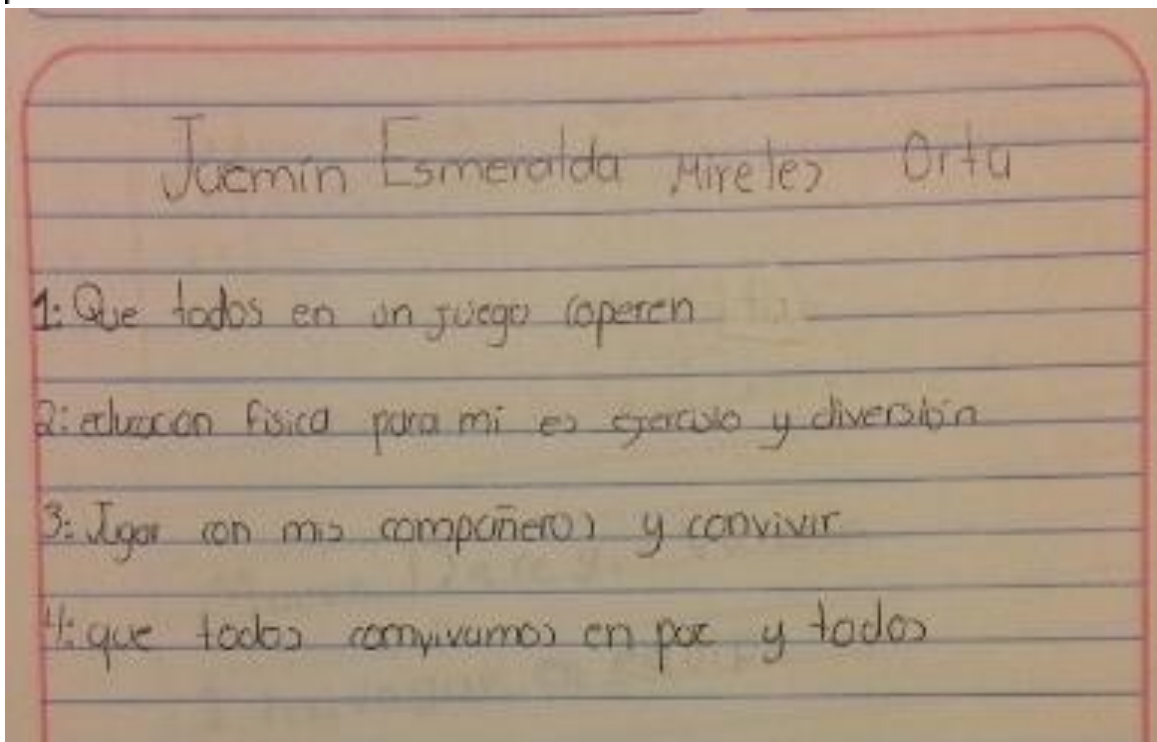 Jacmín Esmeralda Mireles Orta
1: Que todos en un juego coperen
2: educacon fisica para mi es ejercisio y diversión
3: Jugar con mis compañeros y convivir
4: que todos comvivamos en paz y todos